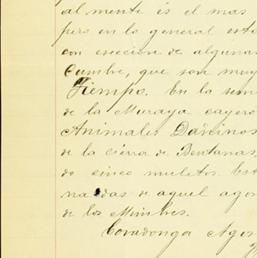 al mente is el mas
pero en lo general esta
con esecion de algunas
Cumbre, que son muy
Tiempo. En la sem
de la Muraya cayero
Animales Dañinos
de la cierra de Bentanas,
do cinco muletos
de aquel agos
de los Mimbres.
Covadonga Agos